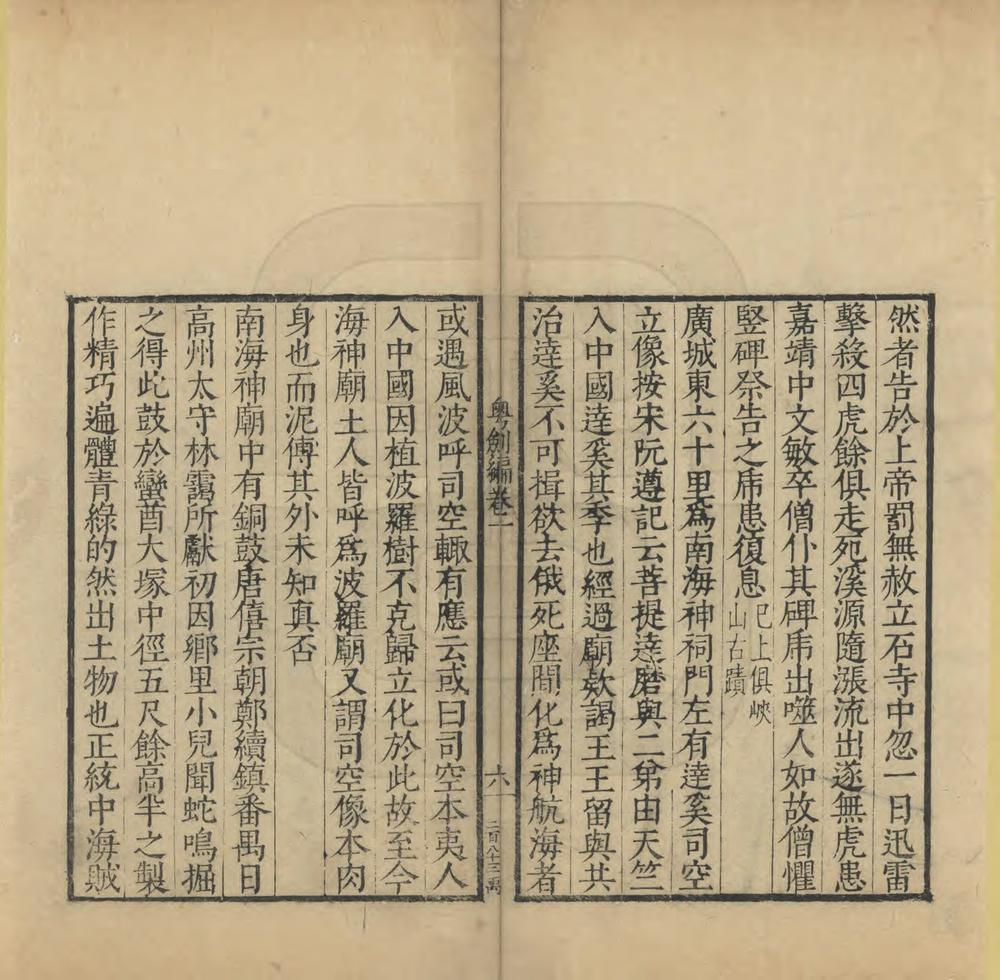 然者告於上帝罰無赦立石寺中忽一日迅雷
擊殺四虎餘俱走死溪源隨漲流出遂無虎患
嘉靖中文敏卒僧仆其碑虎出噬人如故僧懼
竪碑祭告之虎患復息已上俱峽山古蹟
廣城東六十里為南海神祠門左有達奚司空
立像按宋阮遵記云菩提達磨與二弟由天竺
入中國達奚其季也經過廟欵謁王王留與共
治達奚不可揖欲去俄死座間化為神航海者
粵劍編卷二
六
二百八十三萬
或遇風波呼司空輙有應云或曰司空本夷人
入中國因植波羅樹不克歸立化於此故至今
海神廟土人皆呼為波羅廟又謂司空像本肉
身也而泥傅其外未知真否
南海神廟中有銅鼓唐僖宗朝鄭續鎮番禺日
高州太守林靄所獻初因鄉里小兒聞蛇鳴掘
之得此鼓於蠻酋大塚中徑五尺餘高半之製
作精巧遍體青綠的然出土物也正統中海賊